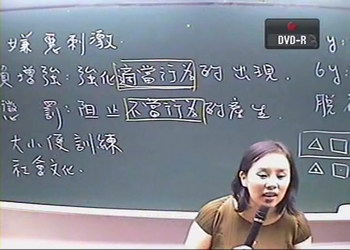 嫌惡刺激.
負增強:強化適當行為的出現.
懲 罰:阻止不當行為的產生.
大小便訓練
社會文化.
DVD-R
y:
6y:
脫